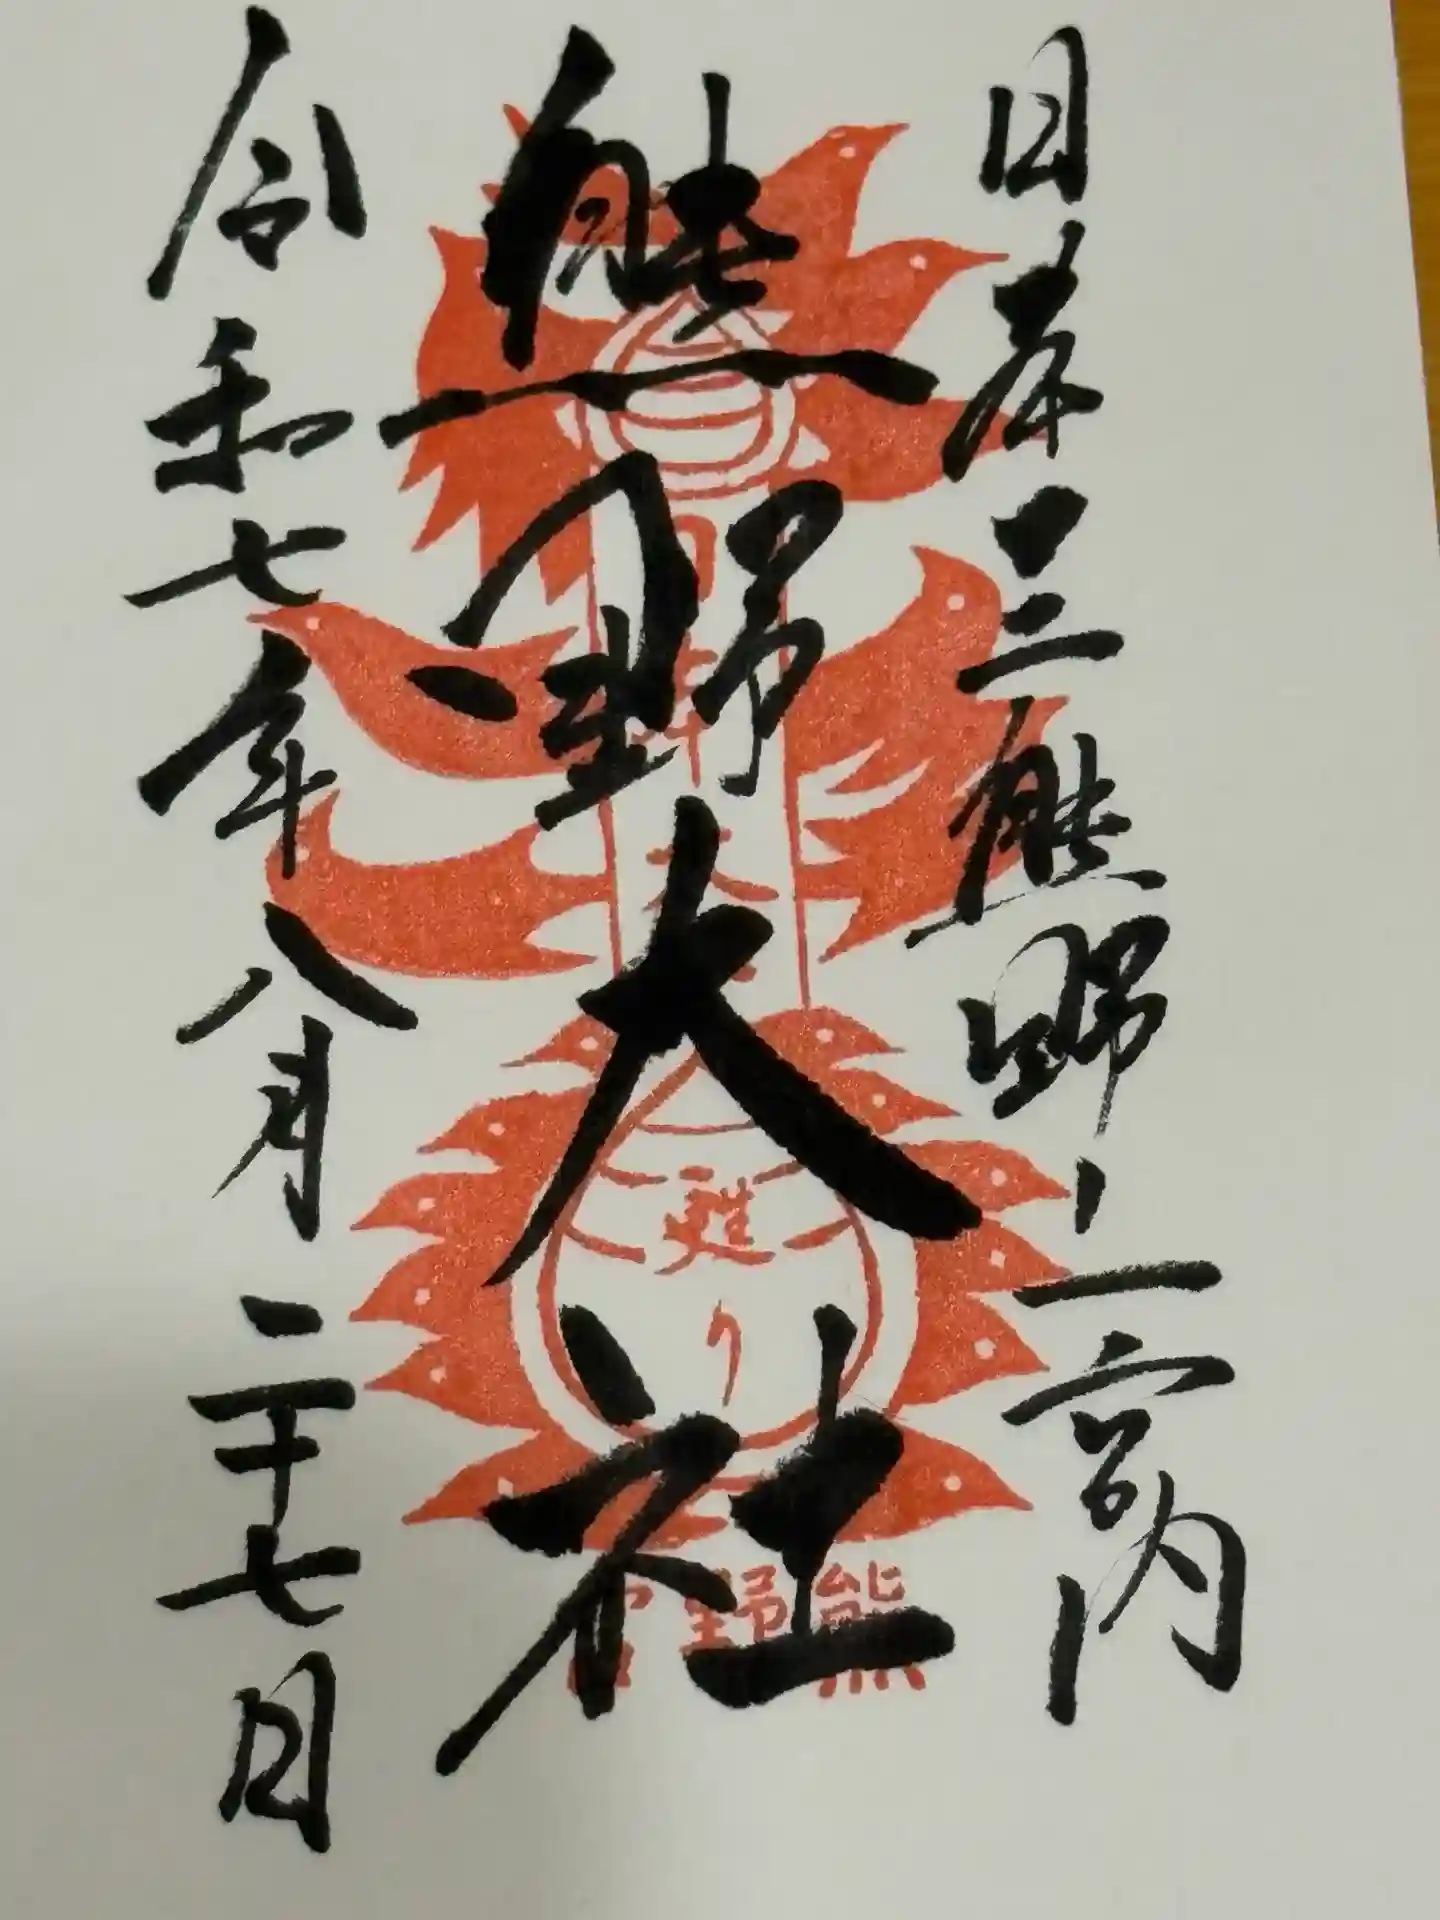 日本三熊野之一宮内
熊野大社
令和七年八月二十七日
甦り
熊野宮